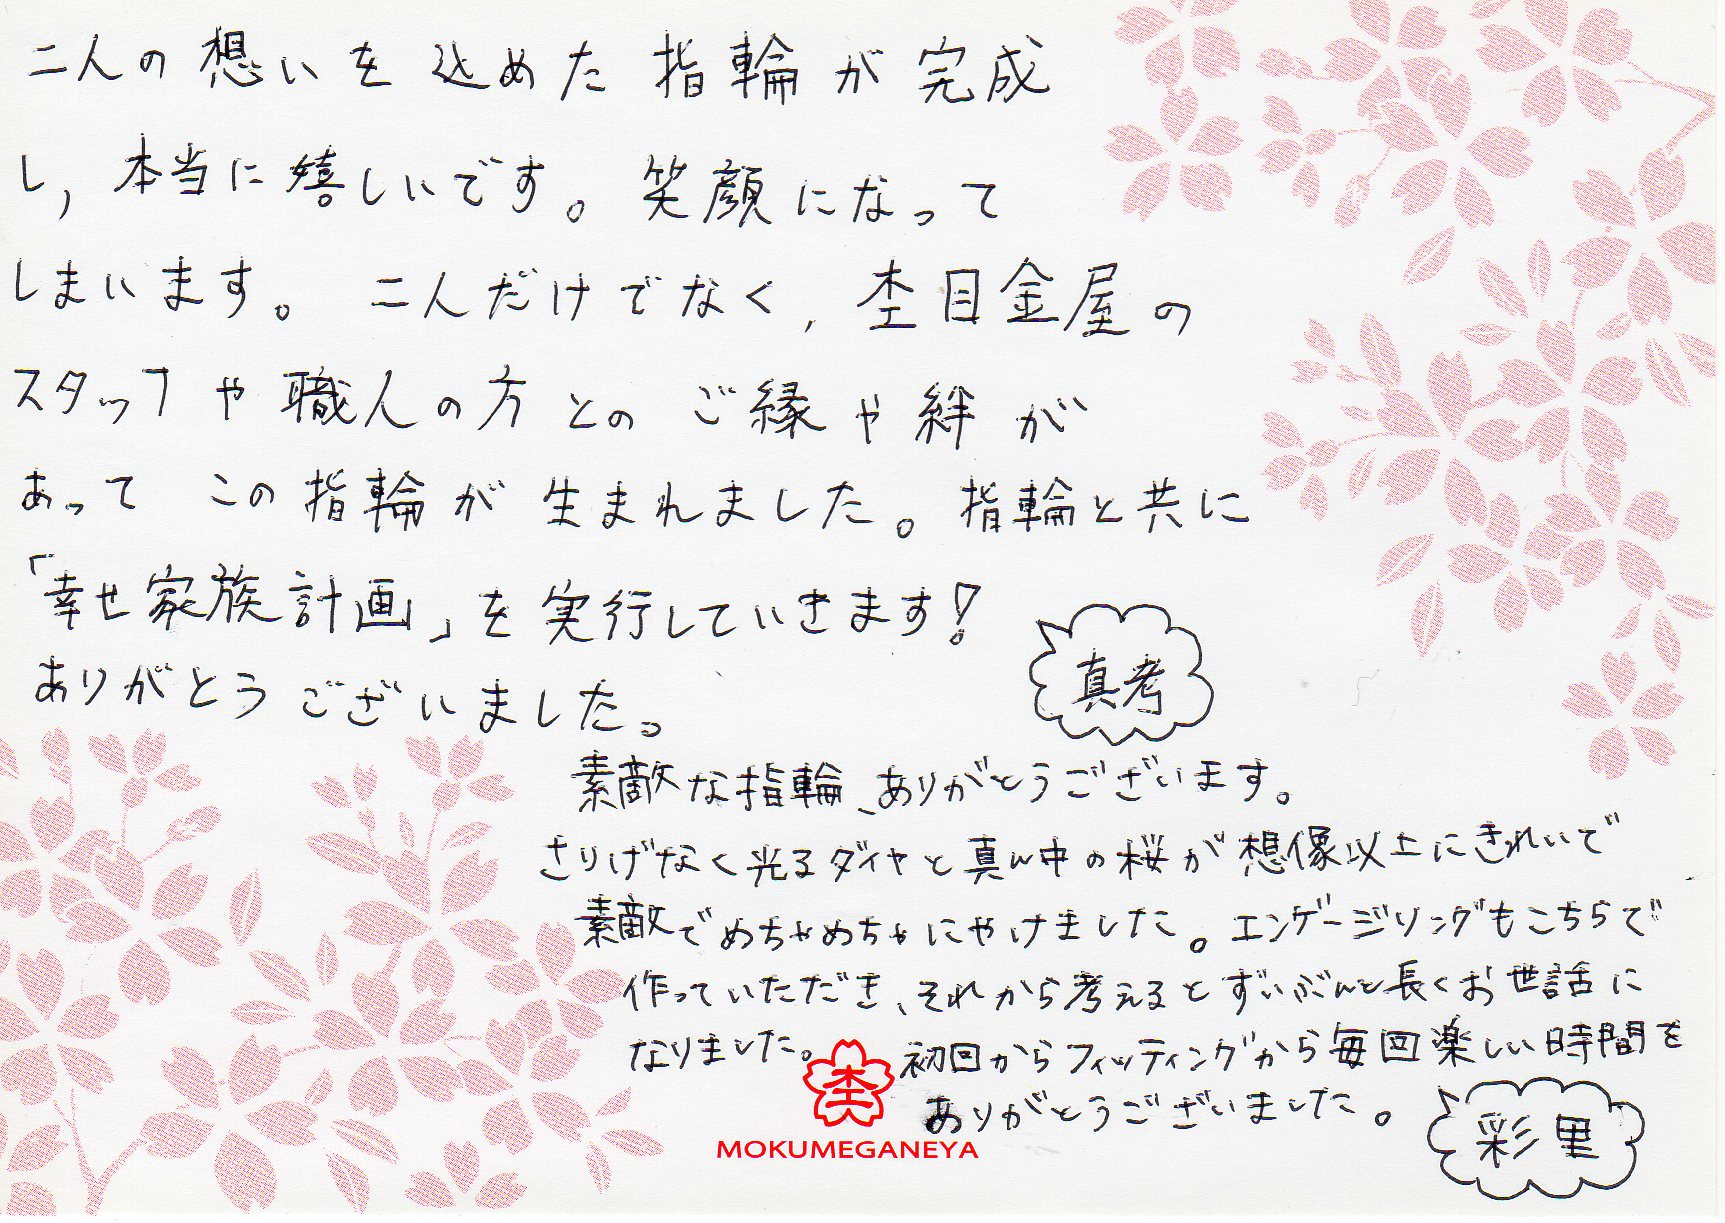 二人の想いを込めた指輪が完成
し，本当に嬉しいです。笑顔になって
しまいます。二人だけでなく，杢目金屋の
スタッフや職人の方とのご縁や絆が
あって この指輪が生まれました。指輪と共に
「幸せ家族計画」を実行していきます!
ありがとうございました。
真考
素敵な指輪、ありがとうございます。
さりげなく光るダイヤと真ん中の桜が想像以上にきれいで
素敵でめちゃめちゃにやけました。エンゲージリングもこちらで
作っていただき、それから考えるとずいぶんと長くお世話に
なりました。初回からフィッティングから毎回楽しい時間を
ありがとうございました。
彩里
杢
MOKUMEGANEYA